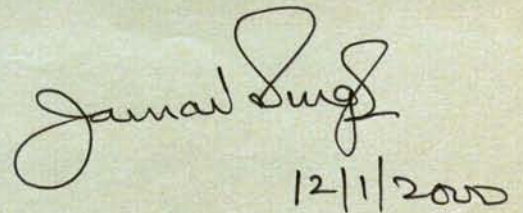 Jarnail Singh
12/1/2000